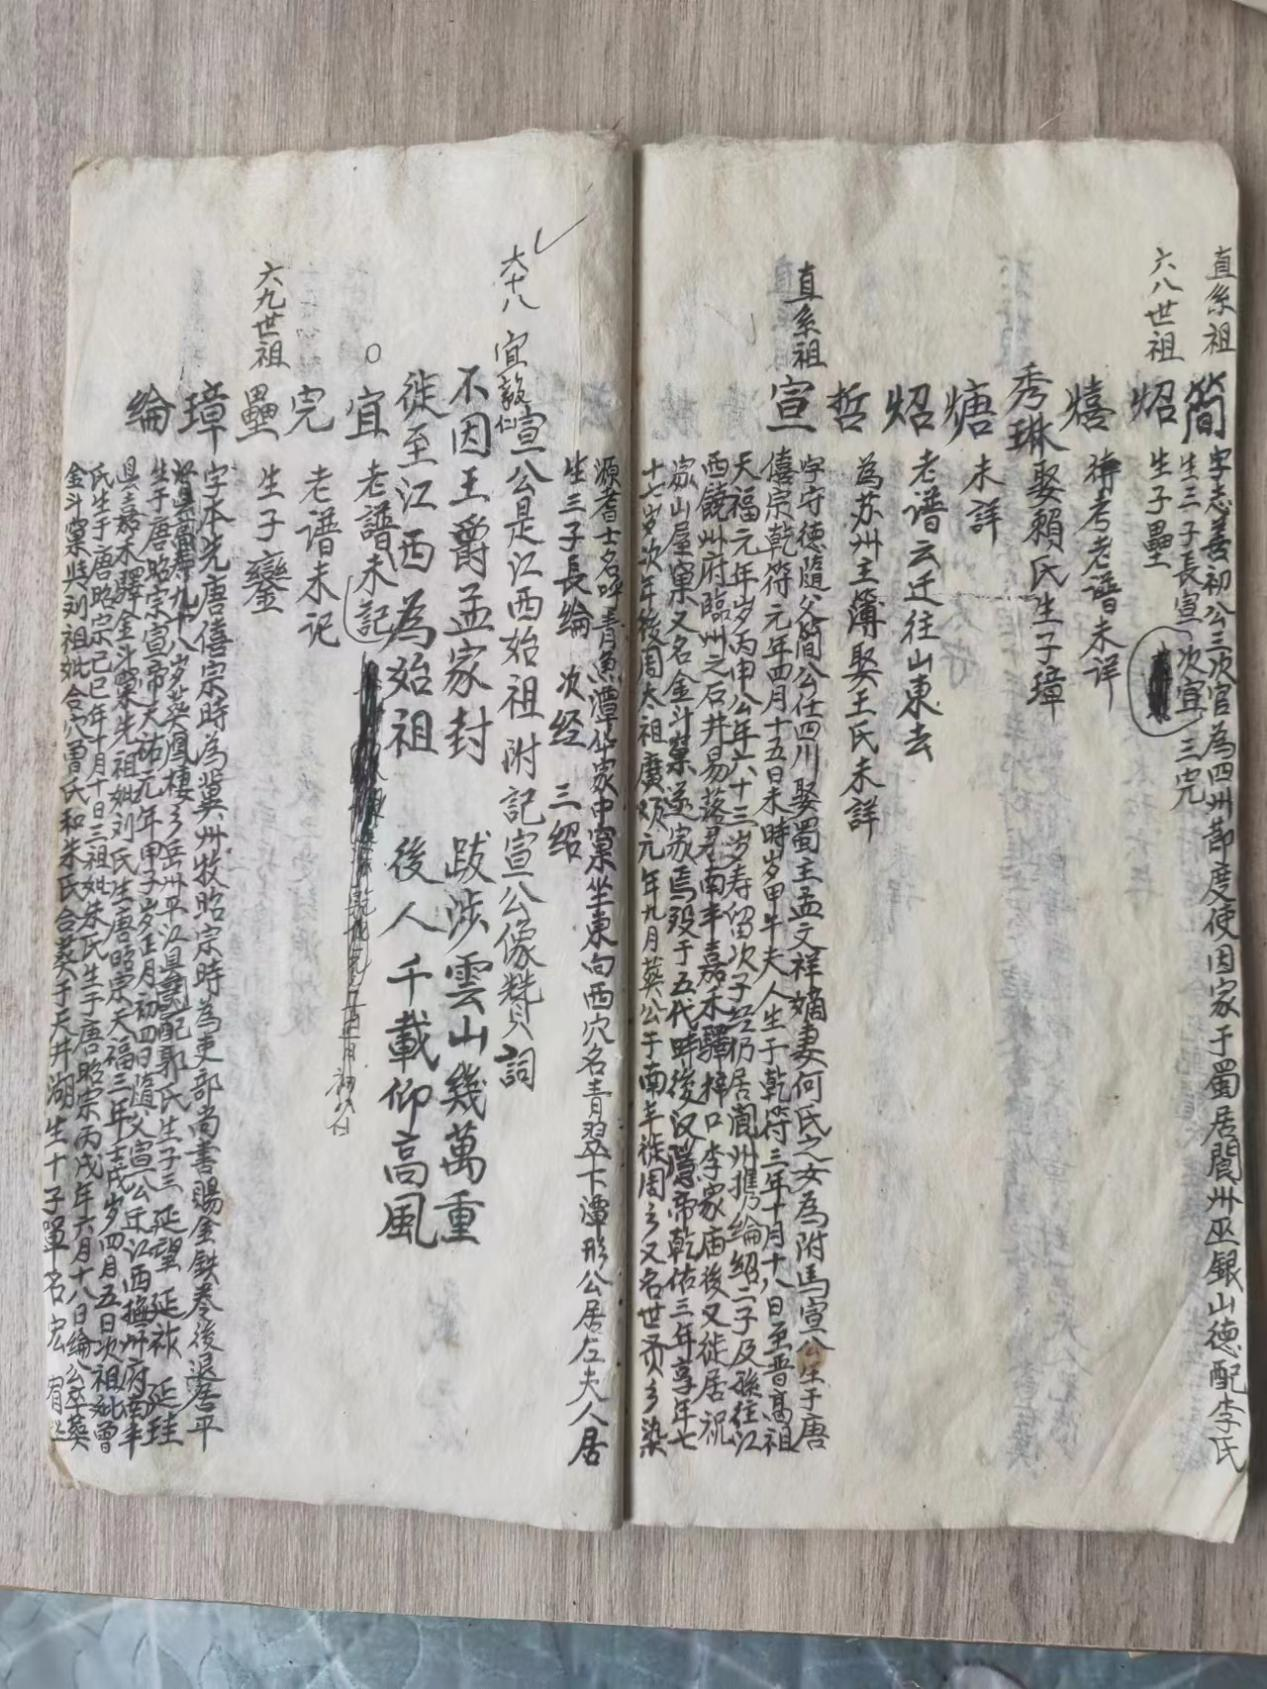 直系祖
簡 字志善初公三次官為四州節度使因家于蜀居閬州巫銀山德配李氏
生三子長宣 次宜 三完
六八世祖
炤 生子壘
熺 待考老谱未详
秀琳 娶賴氏生子璋
焐 未詳
炤 老谱云迁往山東去
哲 為苏州主簿娶王氏未詳
直系祖
宣 字守德隨父簡公仕四川娶蜀主孟文祥嫡妻何氏之女為附馬宣公生于唐
僖宗乾符元年四月十五日未時岁甲午夫人生于乾符三年十月十八日至晋高祖
天福元年岁丙申公年六十三岁寿留次子经仍居閬州携綸紹二子及孫往江
西饒州府臨州之石井易落君南丰嘉禾驛梓口李家庙後又徙居祝
家山屋窠又名金斗窠遂家焉殁于五代時後汉隱帝乾佑三年享年七
十七岁次年後周太祖廣顺元年九月葵公于南丰徙周乡又名世贤乡染
源耆士名呼青魚潭华家中窠坐東向西穴名青翌下潭形公居左夫人居
生三子長綸 次经 三绍
六十八
宣公是江西始祖附記宣公像贊詞
不因王爵孟家封 跋涉雲山幾萬重
徙至江西為始祖 後人千載仰高風
宜 老譜未記
完 老谱未记
六九世祖
壘 生子鑾
璋 字本光唐僖宗時為冀州牧昭宗時為吏部尚書賜金鉄券後退居平
江县高寿九十八岁葵鳳樓乡岳州平江县配郭氏生子三 延望 延祚 延珪
綸 生于唐昭宗宣帝天祐元年甲子岁正月初四日隨父宣公迁江西撫州府南丰
县嘉禾驛金斗窠先祖妣刘氏生唐昭宗天福三年壬戌岁四月五日次祖妣曾
氏生于唐昭宗己巳年十月十日三祖妣朱氏生于唐昭宗丙戌年六月十八日綸公卒葵
金斗窠與刘祖妣合穴曾氏和朱氏合葵于天井湖生十子單名宏